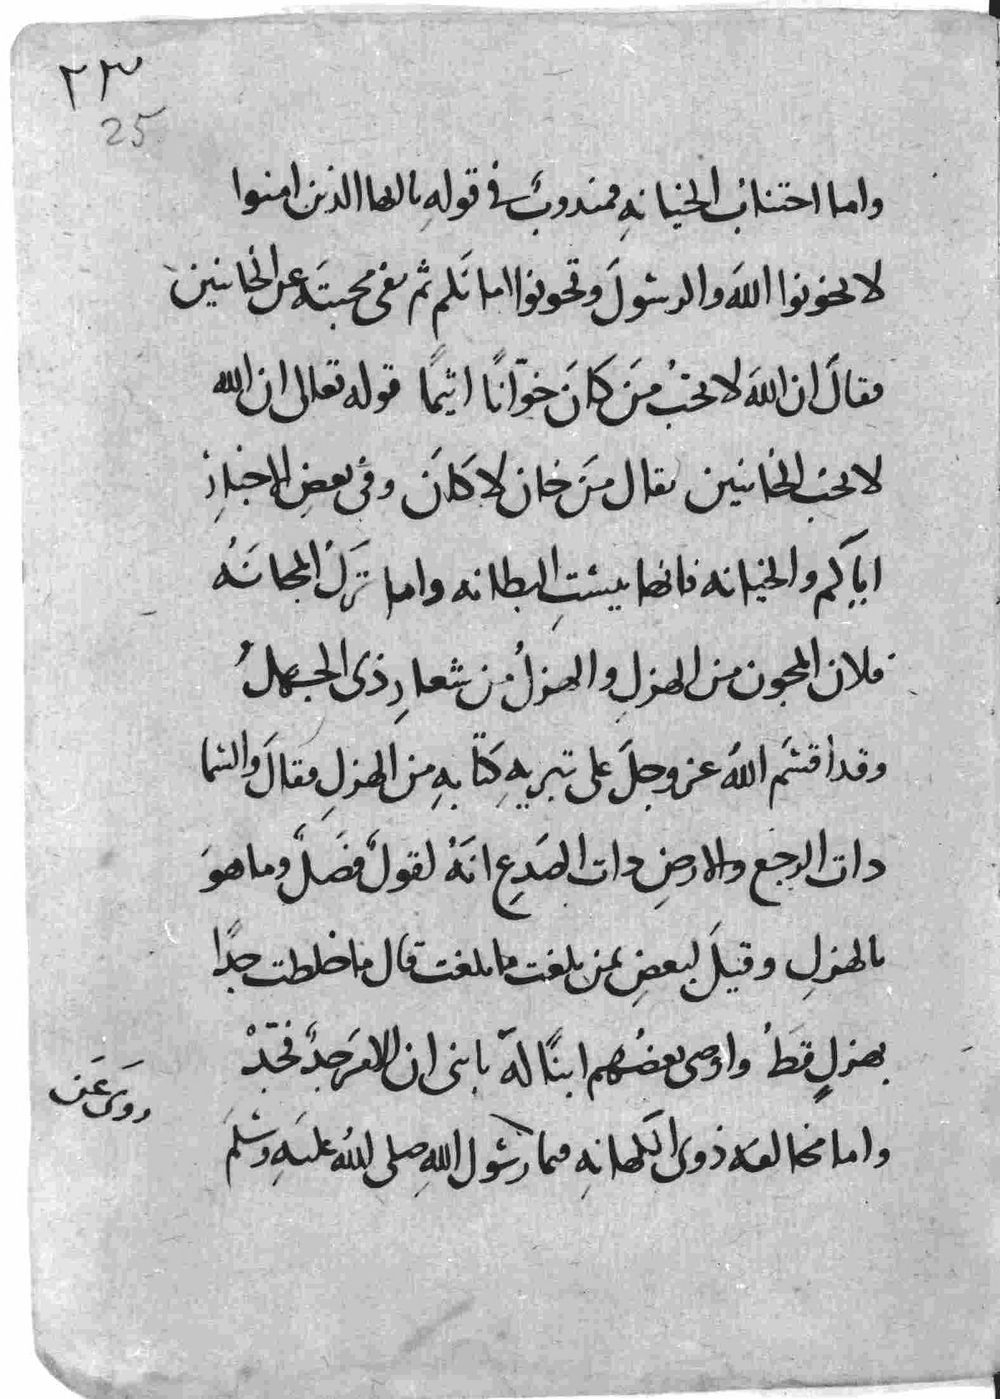 ٢٣
25
واما اجتناب الخيانهِ فمندوبٌ في قولهِ يا ايها الذين امنوا
لا تخونوا اللهَ والرسُولَ وتخونوا اماناتكم ثم نفى محبتَه عن الخاينين
فقالَ ان اللهَ لا يحبُ مَن كانَ خوّانًا اثيمًا قوله تعالى ان الله
لا يحب الخاينين يقال مَن خان لا كانَ وفي بعضِ الاخبارِ
اياكم والخيانه فانها بيستِ البطانه واما تركُ المجانَهُ
فلان المجون من الهزلِ والهزلُ من شعارِ ذى الجهلُ
وقد اقسَم اللهُ عز وجلَ على تبريهِ كتابهِ من الهزلِ فقالَ والسّما
ذات الرجع والارضِ ذات الصَدعِ انَهُ لقولٌ فصَلٌ وما هوَ
بالهزلِ وقيلَ لبعضِ بمن بلغت ما بلغت قال ما خلطت جدًا
بهزلٍ قطَُ واوصى بعضُهم ابنًا لهُ يا بنى ان الامرَ جدٌ فجّدْ
واما مخالفه ذوى الكهانهِ فما رسُول اللهِ صلى اللهُ عليَهِ وسَلمَ
روىَ عَن